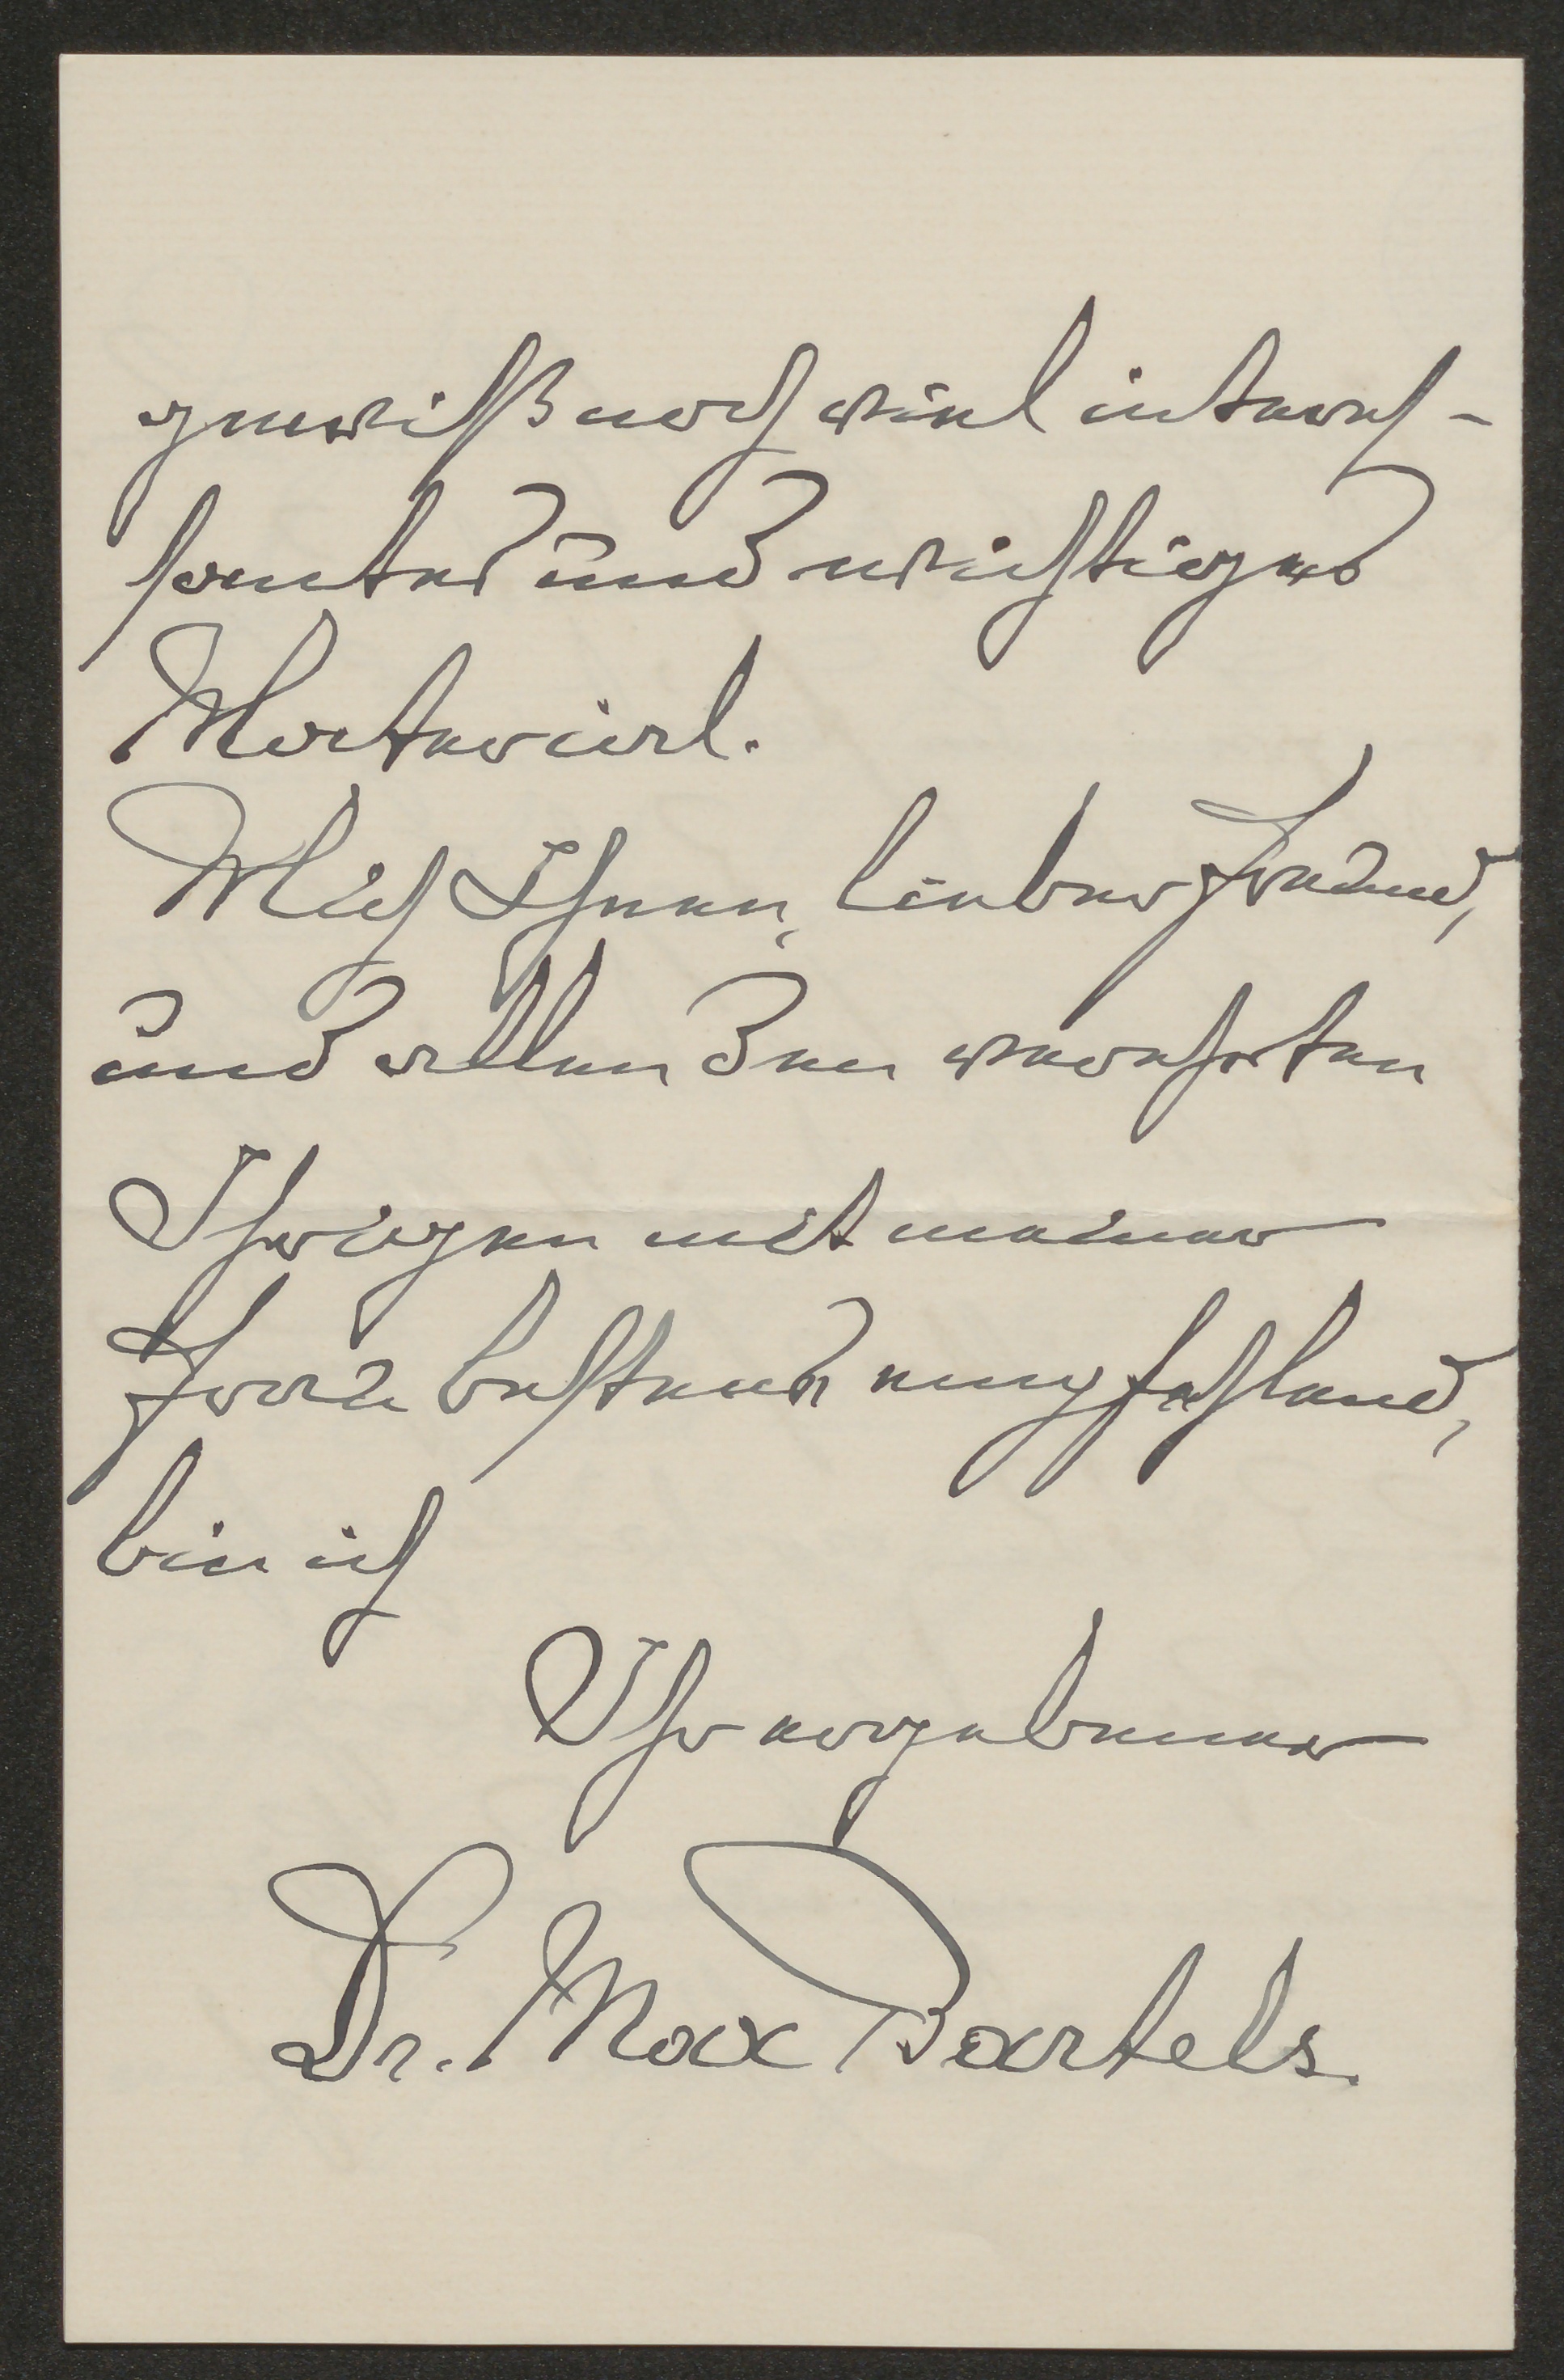 gewiß noch viel interes-
santes und wichtiges
Material.
Mich Ihnen, lieber Freund,
und allen den verehrten
Ihrigen mit meiner
Frau bestens empfehlend,
bin ich
Ihr ergebener
Dr. Max Bartels.